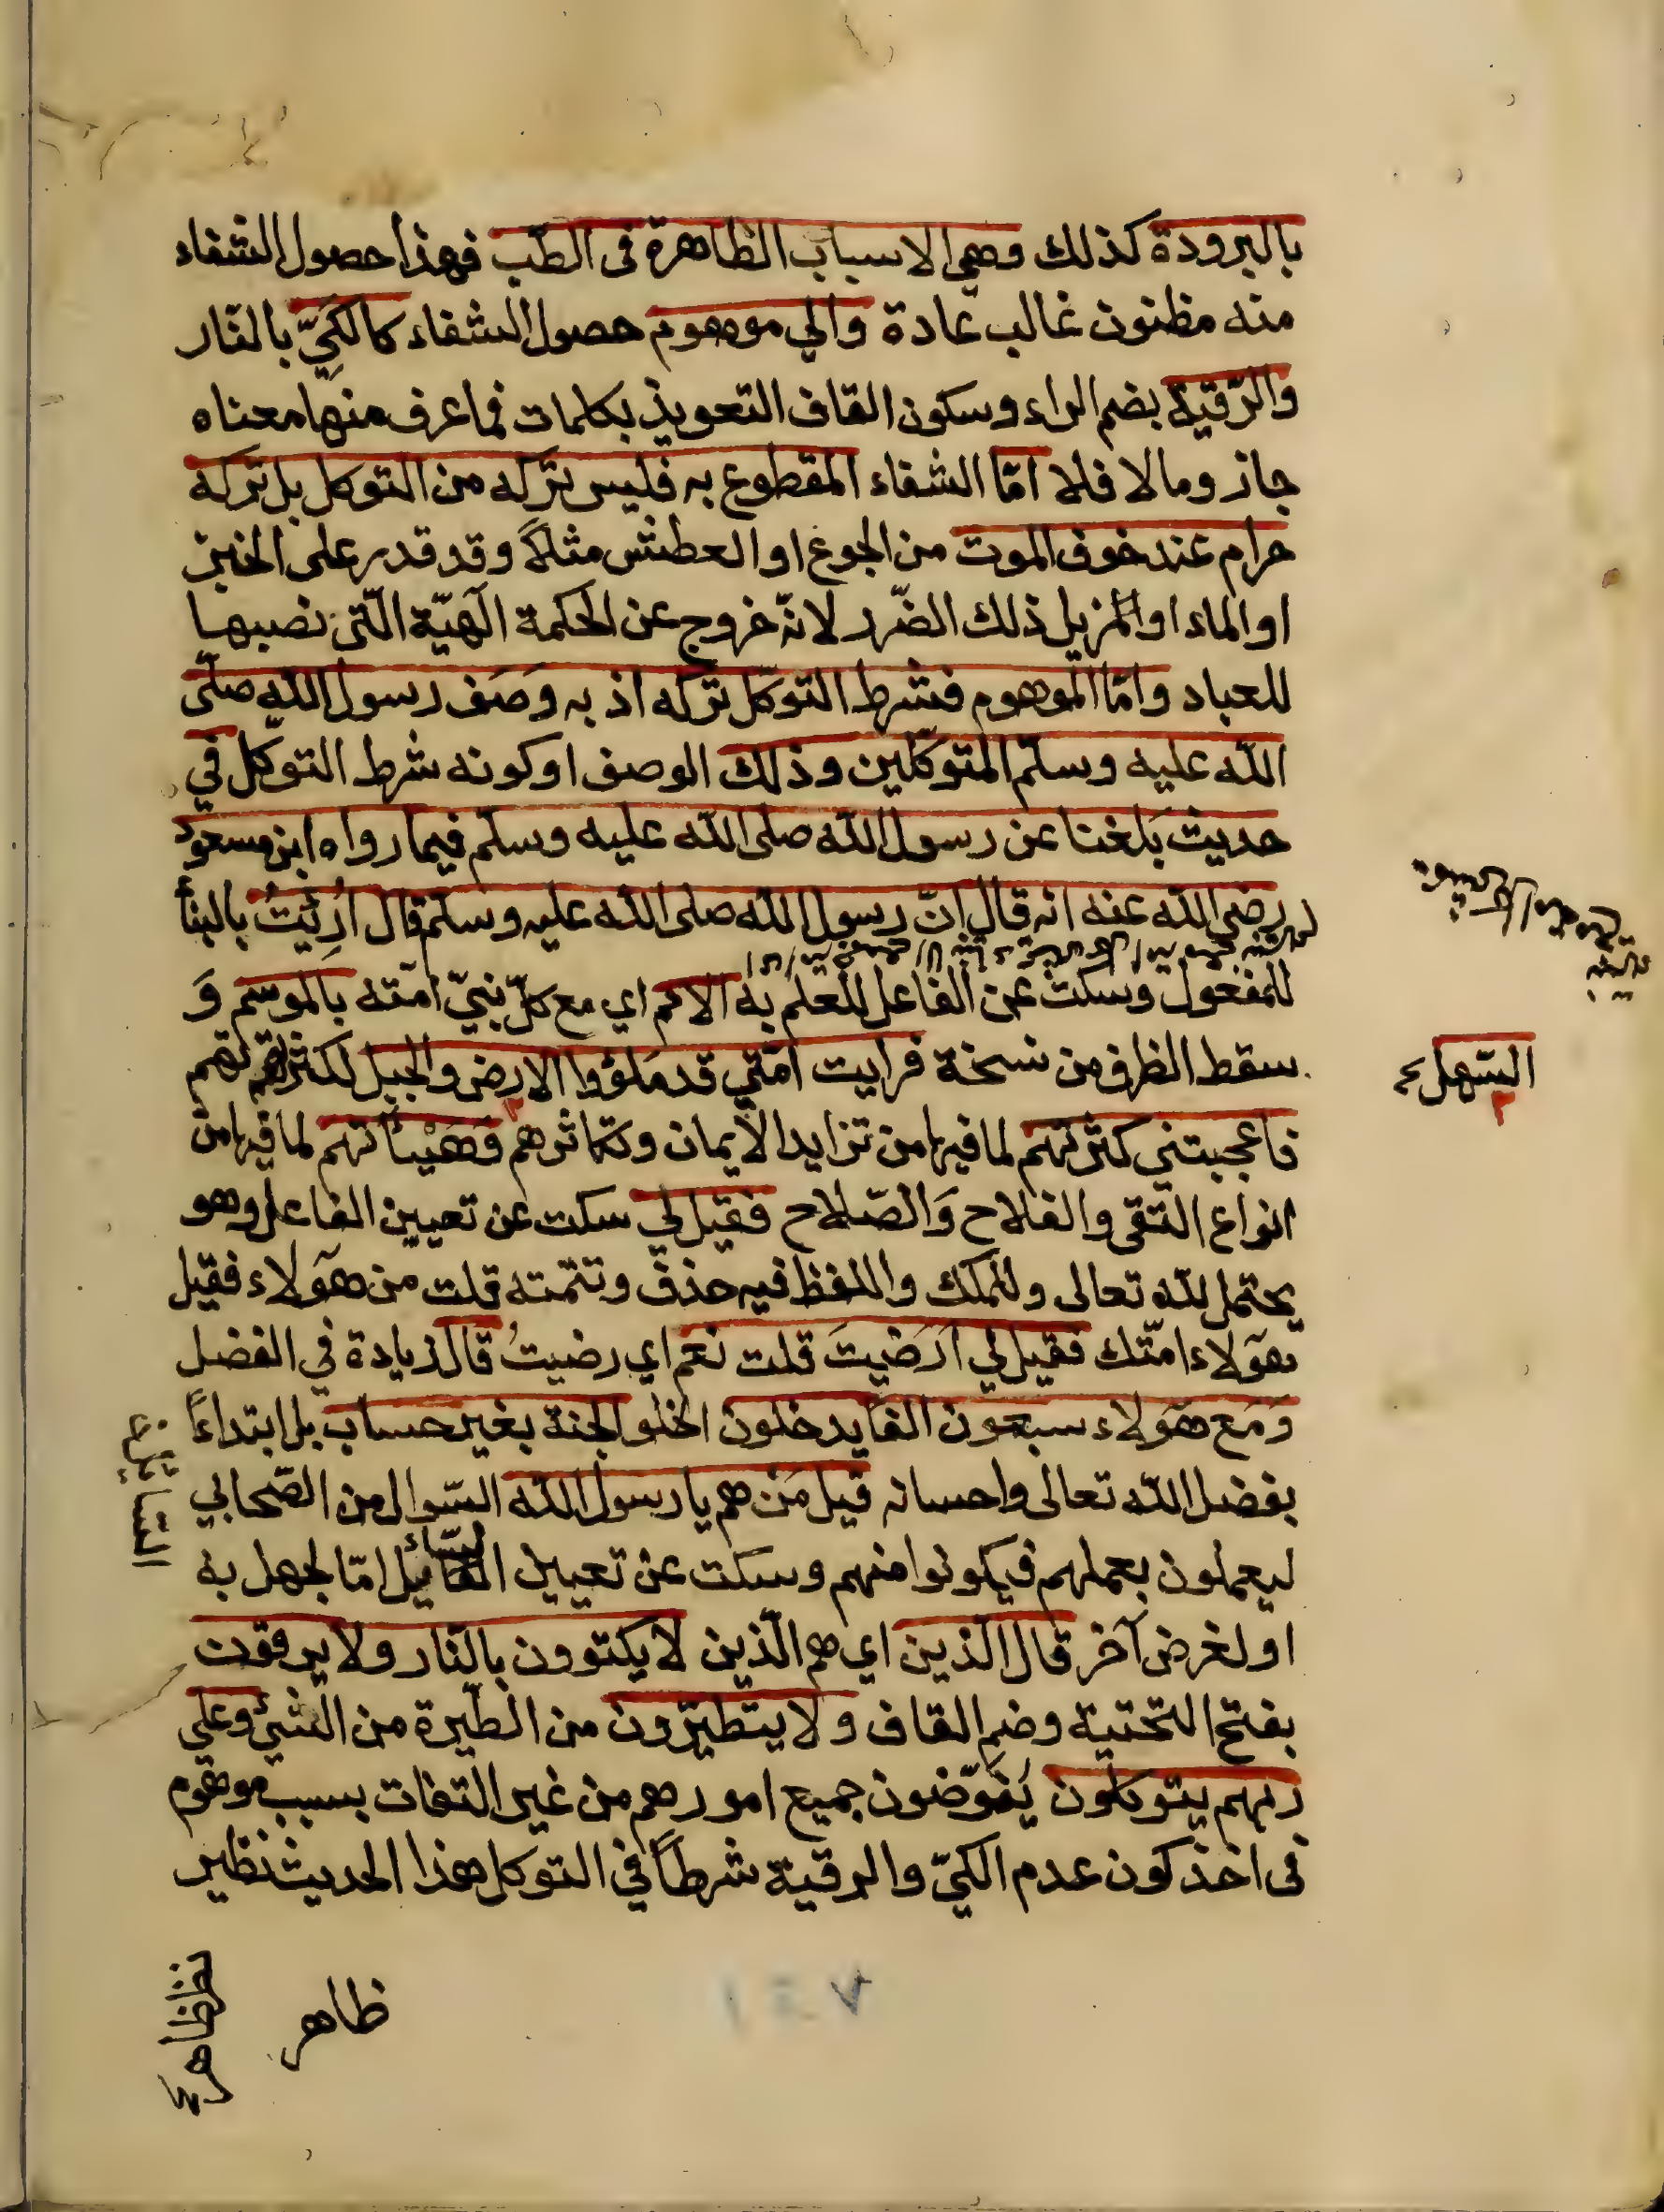 بالبرودة كذلك وهي الاسباب الظاهرة فى الطب فهذا حصول الشفاء
منه مظنون غالب عادة والي موهوم حصول الشفاء كالكَيِّ بالنّار
والرّقية بضم الراء وسكون القاف التعويذ بكلمات فما عرف منها معناه
جاز ومالا فلا امّا الشفاء المقطوع به فليس تركه من التوكل بل تركه
حرام عند خوف الموت من الجوع او العطش مثلاً وقد قدر على الخبز
او الماء او المزيل ذلك الضّرر لانّه خروج عن الحكمة الٓهيّة الّتى نصبها
للعباد وامّا الموهوم فشرط التوكّل تركه اذ به وَصَف رسول اللّه صلّى
اللّه عليه وسلّم المتوكّلين وذلك الوصف او كونه شرط التوكّل في
حديث بَلغنا عن رسول اللّه صلى اللّه عليه وسلّم فيما رواه ابن مسعود
رضي اللّه عنه انه قال انّ رسول اللّه صلى اللّه عليه وسلّم قال اُرِئيتُ بالبنأ
للمفعول وسكت عن الفاعل للعلم به الامم اي مع كلّ نبيّ امّته بالموسم وَ
سقط الظرف من نسخة فرايت امّتي قد مَلؤوا الارض والجبل لكثرتهم
السّهل
فاعجبتني كثرتهم لما فيها من تزايد الايمان وتكاثرهم وَهَيْئاتهم لما فيها من
انواع التقى والفلاح وَالصّلاح فقيل لي سكت عن تعيين الفاعل وهو
يحتمل للّه تعالى وللملك واللفظ فيه حذف وتتمّته قلت من هٓولاء فقيل
هٓولاء امّتك فقيل لي اَرَضيتَ قلت نعم اي رضيتُ قال زيادة في الفضل
وَمَع هٓولاء سبعون الفا يدخلون الجنة بغير حساب بل ابتداءً
بفضل اللّه تعالى واحسانه قيل مَن هم يا رسول اللّه السّوال من الصّحابي
ليعملون بعملهم فيكونوا منهم وسكت عن تعيين السّائل امّا لجهل به
او لغرض آخر قال الّذين اي هم الّذين لا يكتوون بالنّار ولا يرقون
بفتح التحتية وضم القاف ولا يتطيّرون من الطّيرة من الشئ وعلى
ربهم يتوكلون يُفَوّضون جميع امورهم من غير التفات بسبب موهوم
فى اخذ كون عدم الكيّ والرقية شرطاً في التوكل هذا الحديث نظير
ظاهر